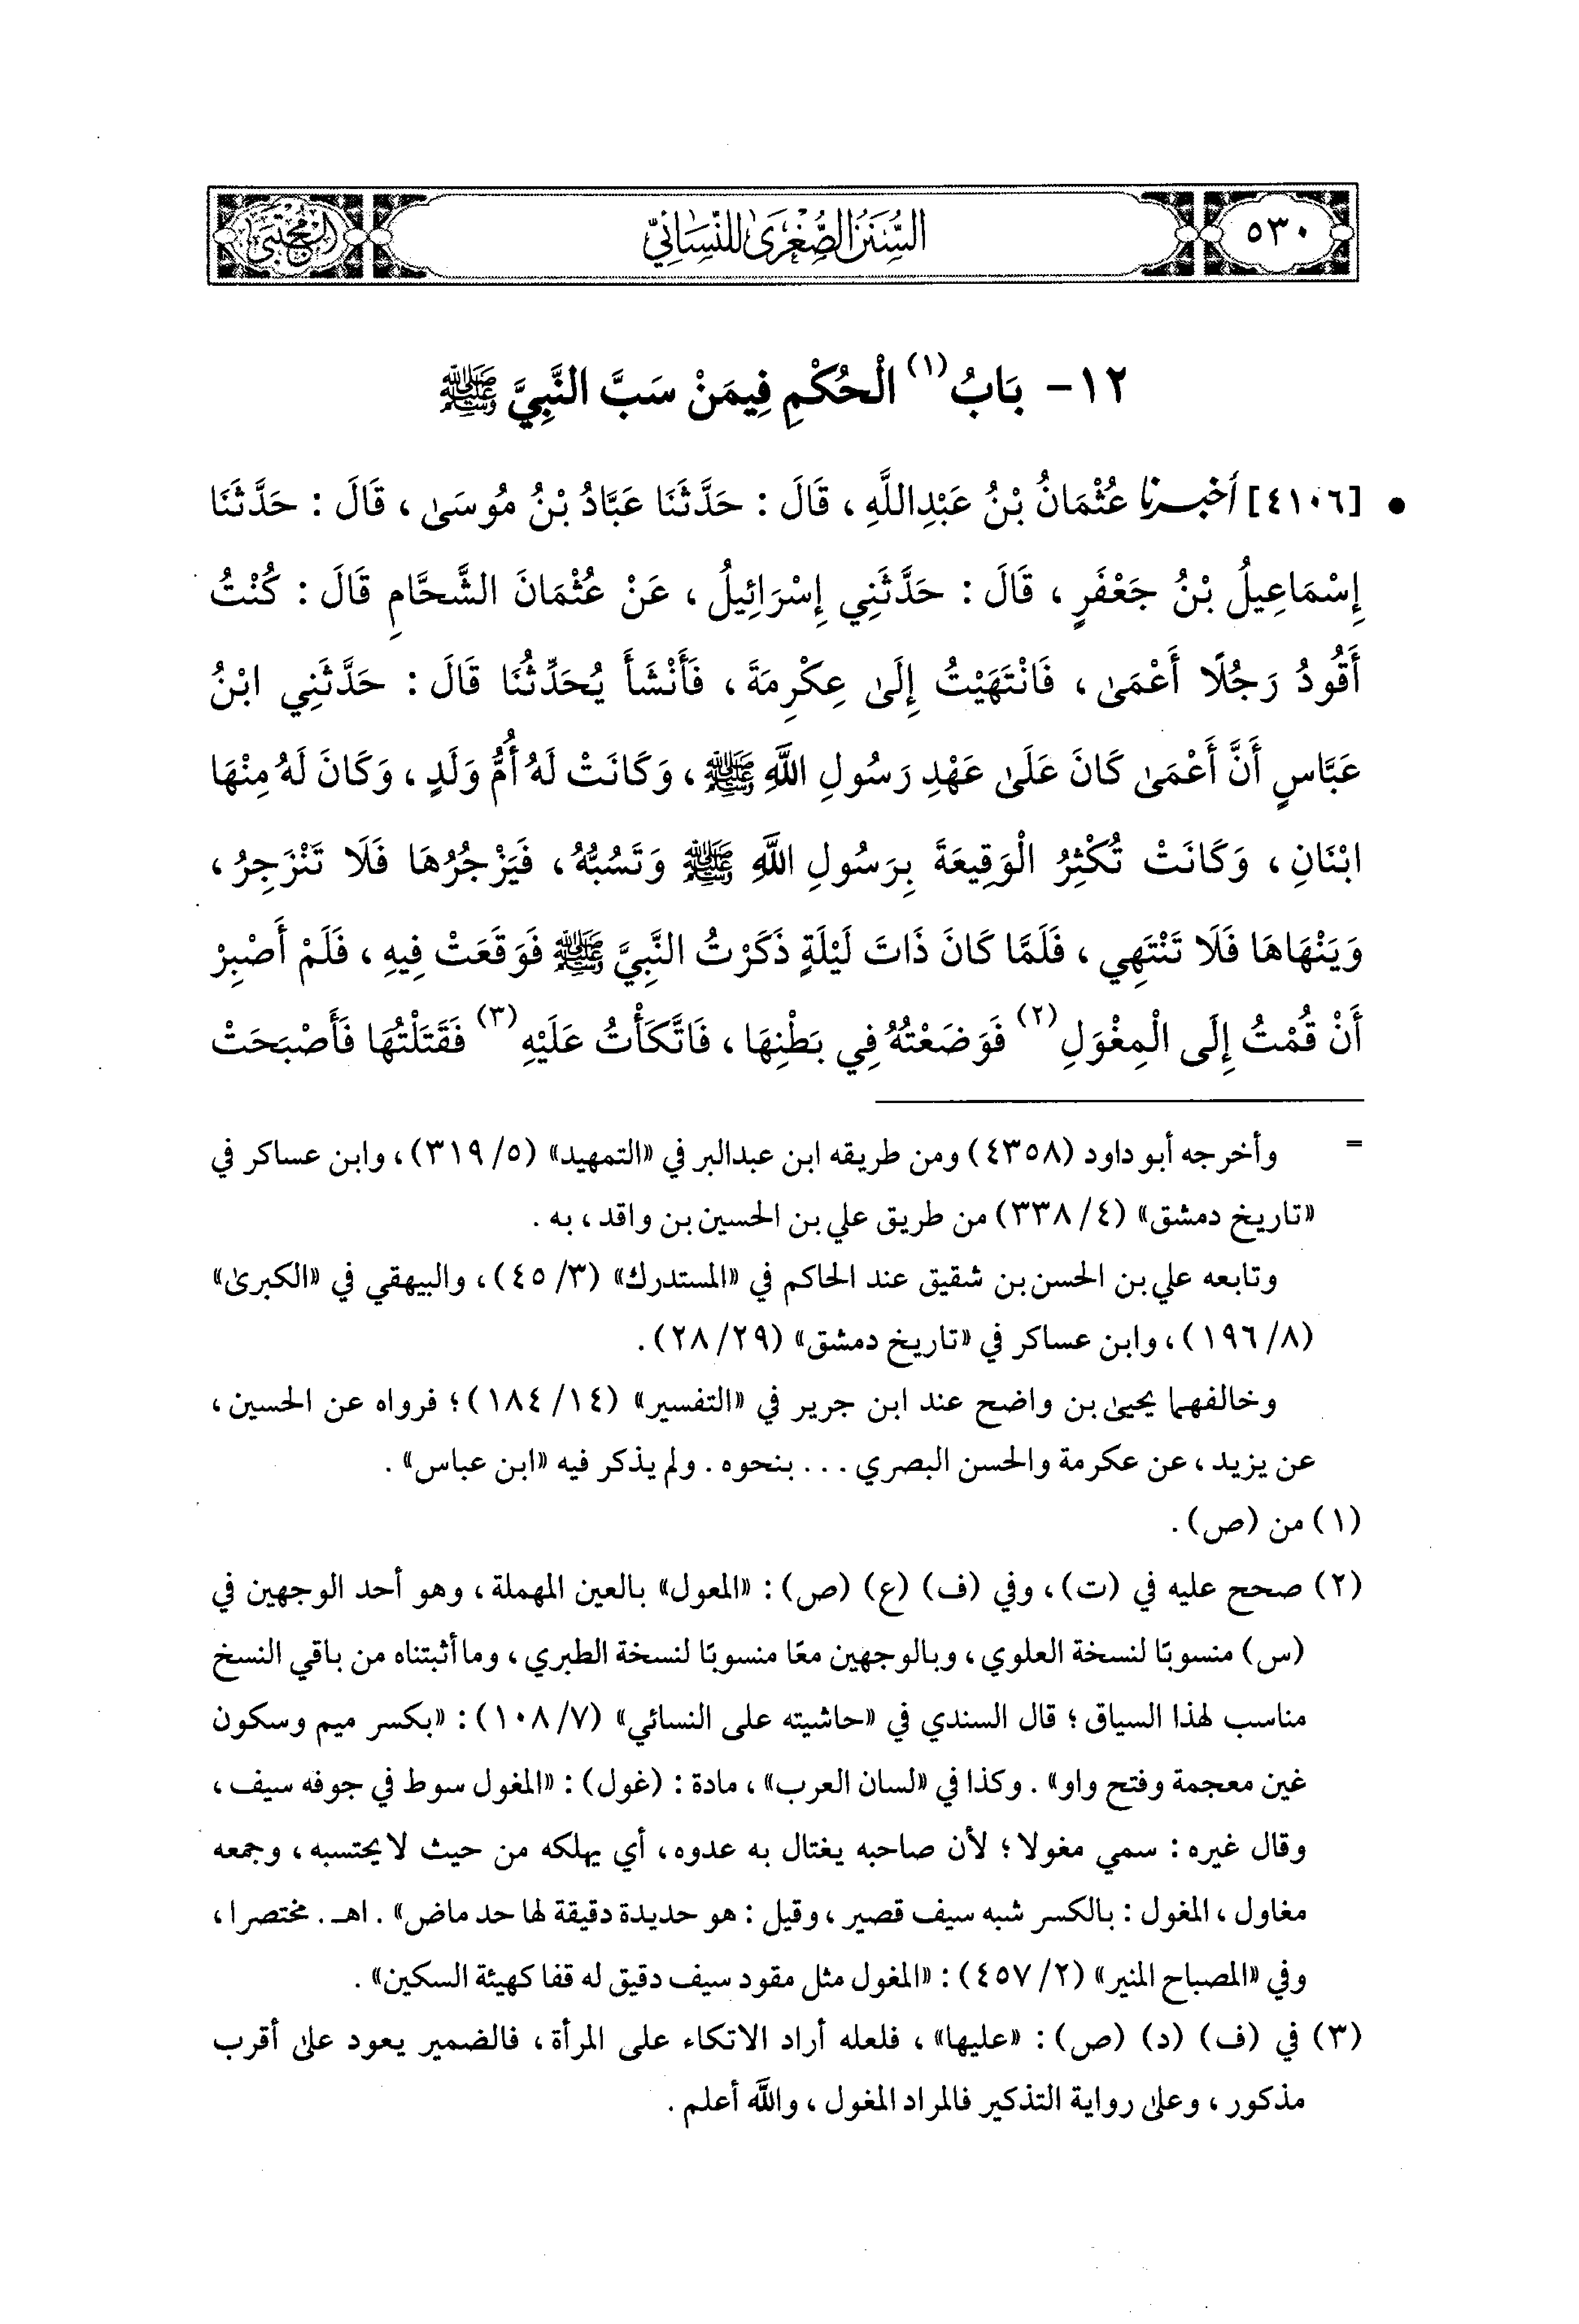 ٥٣٠
السُّنَنُ الصُّغْرَىٰ لِلنَّسَائِيِّ
المجتبى
١٢- بَابُ (١) الْحُكْمِ فِيمَنْ سَبَّ النَّبِيَّ ﷺ
• [٤١٠٦] أخبرنا عُثْمَانُ بْنُ عَبْدِاللَّهِ، قَالَ: حَدَّثَنَا عَبَّادُ بْنُ مُوسَىٰ، قَالَ: حَدَّثَنَا
إِسْمَاعِيلُ بْنُ جَعْفَرٍ، قَالَ: حَدَّثَنِي إِسْرَائِيلُ، عَنْ عُثْمَانَ الشَّحَّامِ قَالَ: كُنْتُ
أَقُودُ رَجُلًا أَعْمَىٰ، فَانْتَهَيْتُ إِلَىٰ عِكْرِمَةَ، فَأَنْشَأَ يُحَدِّثُنَا قَالَ: حَدَّثَنِي ابْنُ
عَبَّاسٍ أَنَّ أَعْمَىٰ كَانَ عَلَىٰ عَهْدِ رَسُولِ اللَّهِ ﷺ، وَكَانَتْ لَهُ أُمُّ وَلَدٍ، وَكَانَ لَهُ مِنْهَا
ابْنَانِ، وَكَانَتْ تُكْثِرُ الْوَقِيعَةَ بِرَسُولِ اللَّهِ ﷺ وَتَسُبُّهُ، فَيَزْجُرُهَا فَلَا تَنْزَجِرُ،
وَيَنْهَاهَا فَلَا تَنْتَهِي، فَلَمَّا كَانَ ذَاتَ لَيْلَةٍ ذَكَرْتُ النَّبِيَّ ﷺ فَوَقَعَتْ فِيهِ، فَلَمْ أَصْبِرْ
أَنْ قُمْتُ إِلَى الْمِغْوَلِ (٢) فَوَضَعْتُهُ فِي بَطْنِهَا، فَاتَّكَأْتُ عَلَيْهِ (٣) فَقَتَلْتُهَا فَأَصْبَحَتْ
= وأخرجه أبو داود (٤٣٥٨) ومن طريقه ابن عبدالبر في «التمهيد» (٥/ ٣١٩)، وابن عساكر في
«تاريخ دمشق» (٤/ ٣٣٨) من طريق علي بن الحسين بن واقد، به.
وتابعه علي بن الحسن بن شقيق عند الحاكم في «المستدرك» (٣/ ٤٥)، والبيهقي في «الكبرىٰ»
(٨/ ١٩٦)، وابن عساكر في «تاريخ دمشق» (٢٩/ ٢٨).
وخالفهما يحيىٰ بن واضح عند ابن جرير في «التفسير» (١٤/ ١٨٤)؛ فرواه عن الحسين،
عن يزيد، عن عكرمة والحسن البصري ... بنحوه. ولم يذكر فيه «ابن عباس».
(١) من (ص).
(٢) صحح عليه في (ت)، وفي (ف) (ع) (ص): «المعول» بالعين المهملة، وهو أحد الوجهين في
(س) منسوبًا لنسخة العلوي، وبالوجهين معًا منسوبًا لنسخة الطبري، وما أثبتناه من باقي النسخ
مناسب لهذا السياق؛ قال السندي في «حاشيته على النسائي» (٧/ ١٠٨): «بكسر ميم وسكون
غين معجمة وفتح واو». وكذا في «لسان العرب»، مادة: (غول): «المغول سوط في جوفه سيف،
وقال غيره: سمي مغولا؛ لأن صاحبه يغتال به عدوه، أي يهلكه من حيث لا يحتسبه، وجمعه
مغاول، المغول: بالكسر شبه سيف قصير، وقيل: هو حديدة دقيقة لها حد ماض». اهـ. مختصرا،
وفي «المصباح المنير» (٢/ ٤٥٧): «المغول مثل مقود سيف دقيق له قفا كهيئة السكين».
(٣) في (ف) (د) (ص): «عليها»، فلعله أراد الاتكاء على المرأة، فالضمير يعود علىٰ أقرب
مذكور، وعلىٰ رواية التذكير فالمراد المغول، واللَّه أعلم.